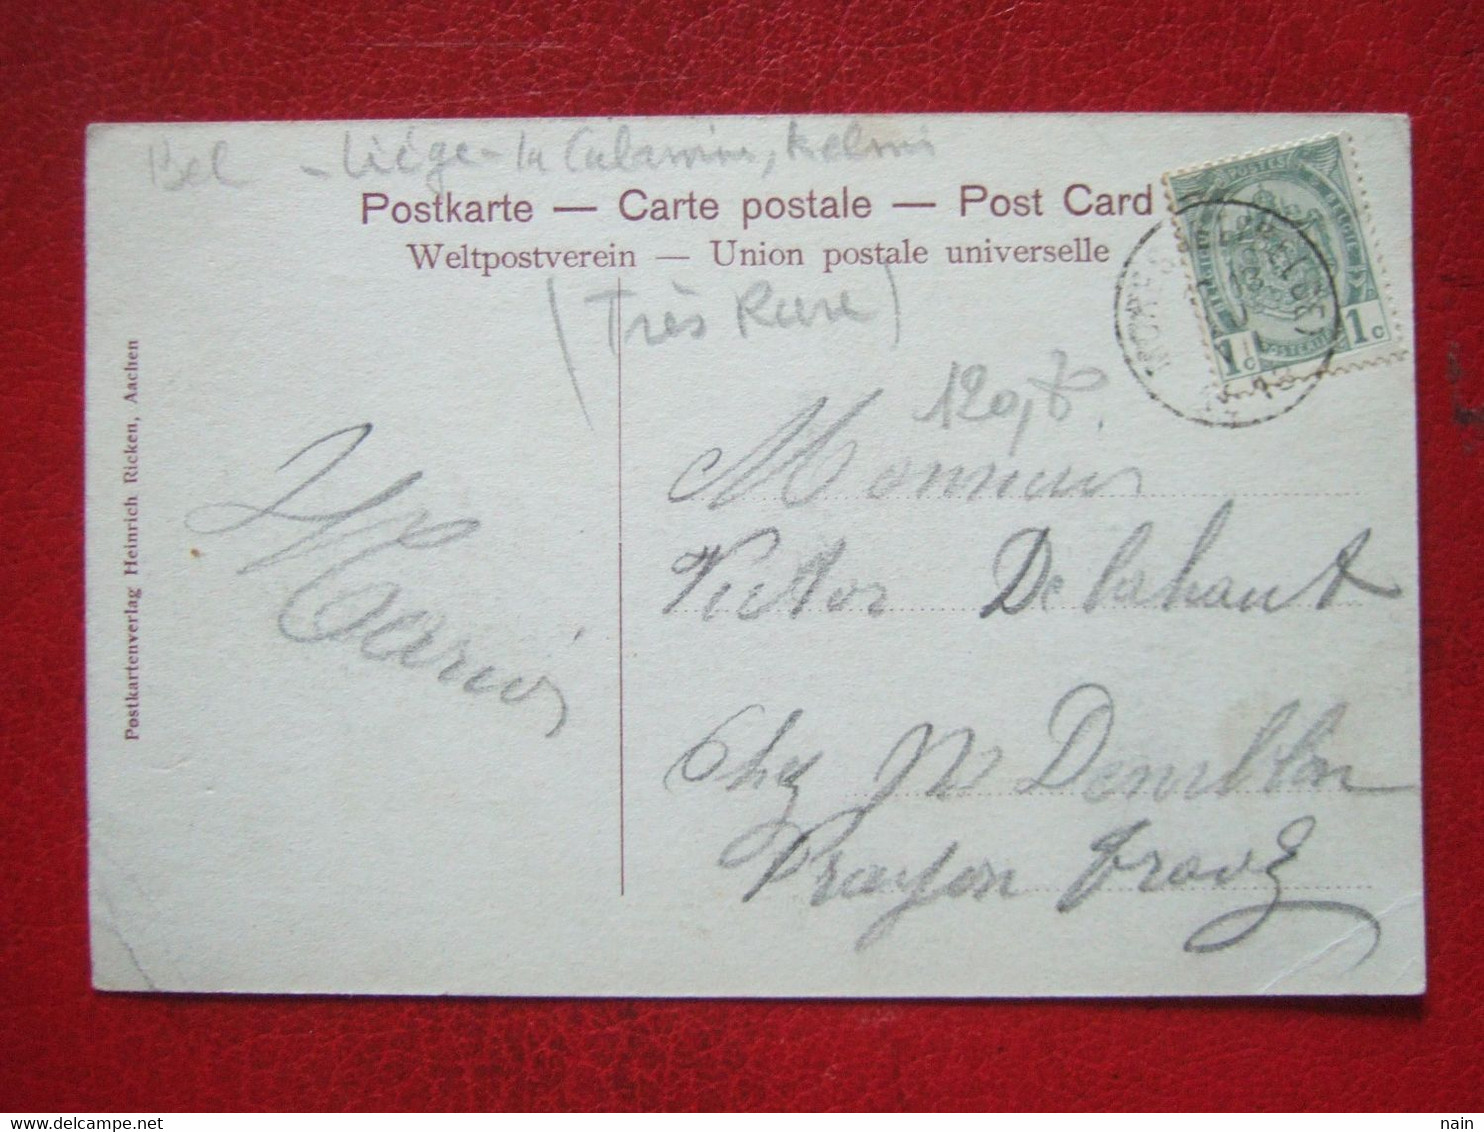 Bel - Liége - la Calamine, Kelmis
Postkarte — Carte postale — Post Card
Weltpostverein — Union postale universelle
(Très Rare)
POSTES
BELGIQUE
1c 1c
MORESNET (BELGE)
Postkartenverlag Heinrich Ricken, Aachen
Monsieur
Victor Delahaut
Chez M Demblon
Prayon Trooz
delcampe.net
nain